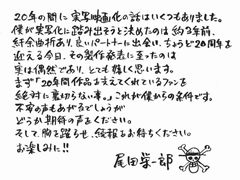 20年の間に実写映画化の話はいくつもありました。
僕が実写化に踏み出そうと決めたのは約3年前、
紆余曲折あり、良いパートナーに出会い、ちょうど20周年を
迎える今日、その製作発表に至ったのは
実は偶然であり、とても嬉しく思います。
まず「20年間作品を支えてくれているファンを
絶対に裏切らない事。」これが僕からの条件です。
不安の声もあがるでしょうが
どうか期待の声もください。
そして胸を躍らせ、続報をお待ちください。
お楽しみに!!
尾田栄一郎